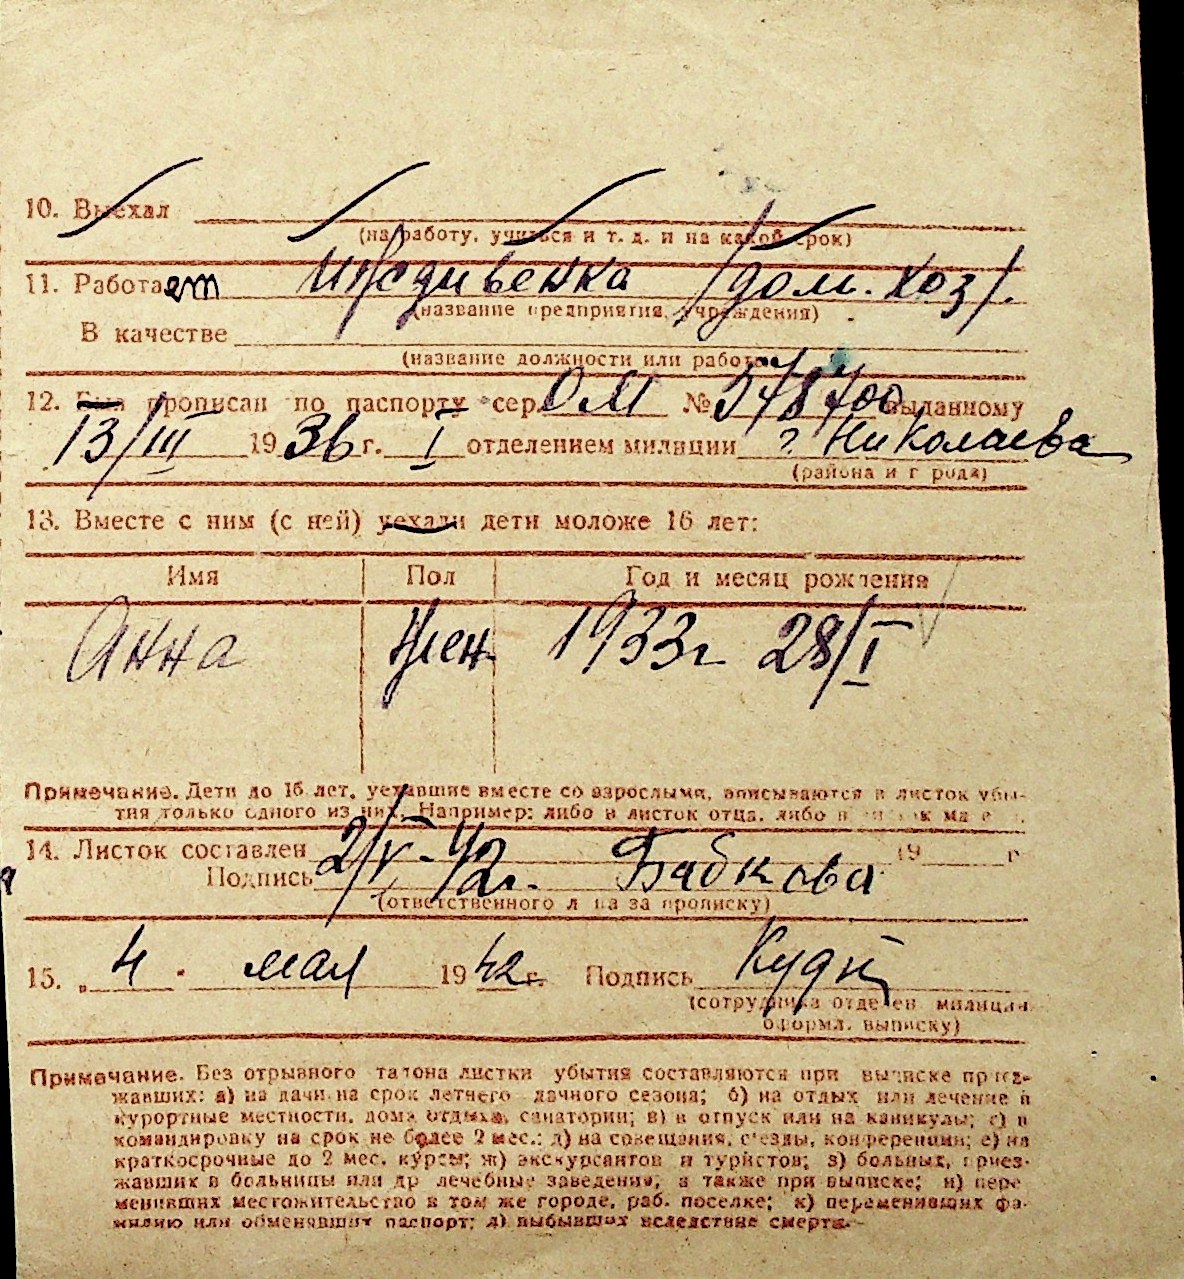 10. Выехал
(на работу, учиться и т. д. и на какой срок)
11. Работает иждивенка /дом. хоз/.
(название предприятия, учреждения)
В качестве
(название должности или работы)
12. Был прописан по паспорту сер. ОМ № 578700 выданному
13/III 1936 г. I отделением милиции г. Николаева
(района и города)
13. Вместе с ним (с ней) уехали дети моложе 16 лет:
Имя Пол Год и месяц рождения
Анна жен 1933 г 28/I
Примечание. Дети до 16 лет, уехавшие вместе со взрослыми, вписываются в листок убы-
тия только одного из них. Например: либо в листок отца, либо в
14. Листок составлен 2/V-42 г. 19 г
Подпись Бабкова
(ответственного лица за прописку)
15. „ 4 . мая 1942 г. Подпись
(сотрудника отделен. милиции
оформл. выписку)
Примечание. Без отрывного талона листки убытия составляются при выписке приез-
жавших: а) на дачи на срок летнего дачного сезона; б) на отдых или лечение в
курортные местности, дома отдыха, санатории; в) в отпуск или на каникулы; г) в
командировку на срок не более 2 мес.; д) на совещания, съезды, конференции; е) на
краткосрочные до 2 мес. курсы; ж) экскурсантов и туристов; з) больных, приез-
жавших в больницы или др лечебные заведения, а также при выписке; и) пере
менивших местожительство в том же городе, раб. поселке; к) переменивших фа-
милию или обменявших паспорт; л) выбывших вследствие смерти.